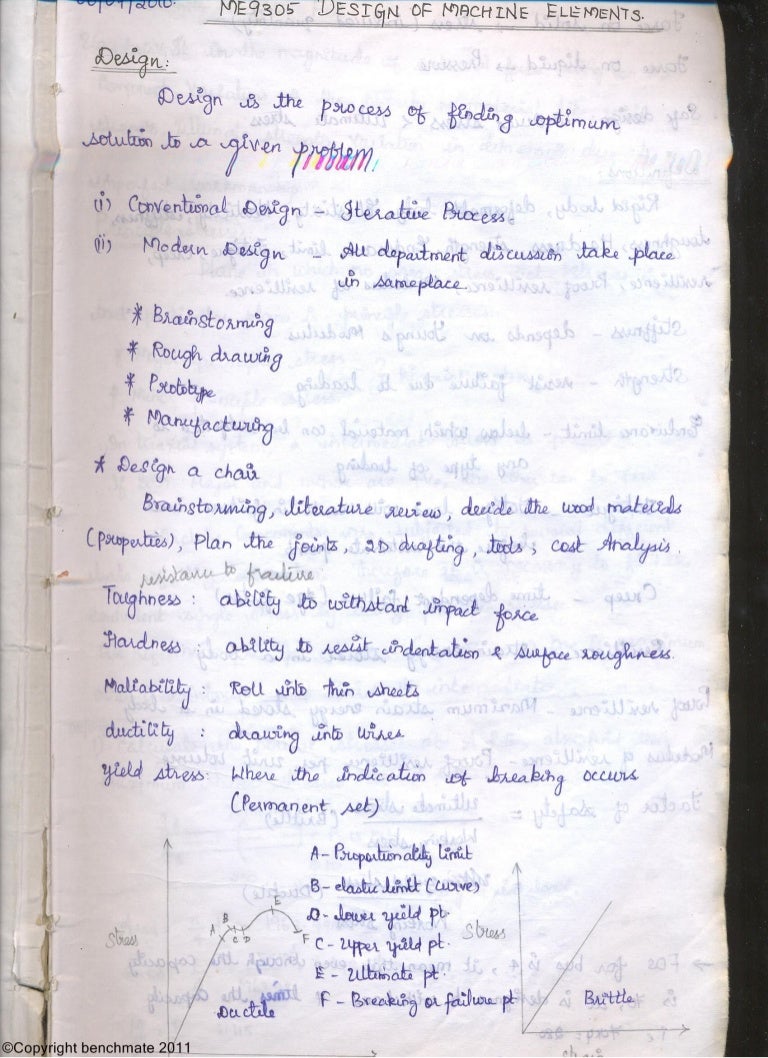 ME9305 DESIGN OF MACHINE ELEMENTS.
Design:
Design is the process of finding optimum
solution to a given problem.
(i) Conventional Design - Iterative Process.
(ii) Modern Design - All department discussion take place
in sameplace.
* Brainstorming
* Rough drawing
* Prototype
* Manufacturing
* Design a chair
Brainstorming, literature review, decide the wood materials
(properties), Plan the joints, 2D drafting, tools, cost Analysis.
resistance to fracture
Toughness : ability to withstand impact force
Hardness : ability to resist indentation & surface roughness.
Maliability : Roll into thin sheets
ductility : drawing into wires
yield stress: Where the indication of breaking occurs
(Permanent set)
A - Proportionality limit
B - elastic limit (curve)
D - lower yield pt.
C - Upper yield pt.
E - Ultimate pt.
F - Breaking or failure pt
Stress
A B C D E F
Ductile
Stress
Brittle
©Copyright benchmate 2011